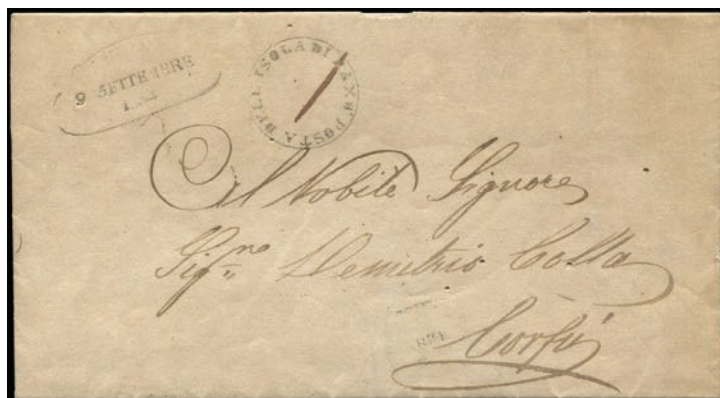 9 SETTEMBRE
POSTA DELL ISOLA DI PAXO
Al Nobile Signore
Sig.ro Demetrio Colla
Corfù